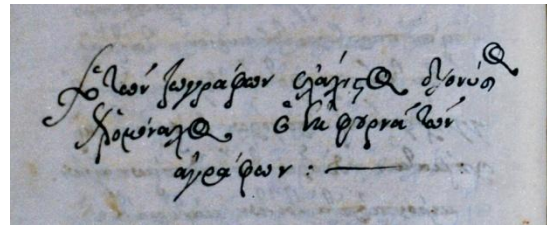 τῶν ζωγράφων ἐλάχιστος διονύσιος
ἱερομόναχος ὁ ἐκ φουρνᾶ τῶν
ἀγράφων : —